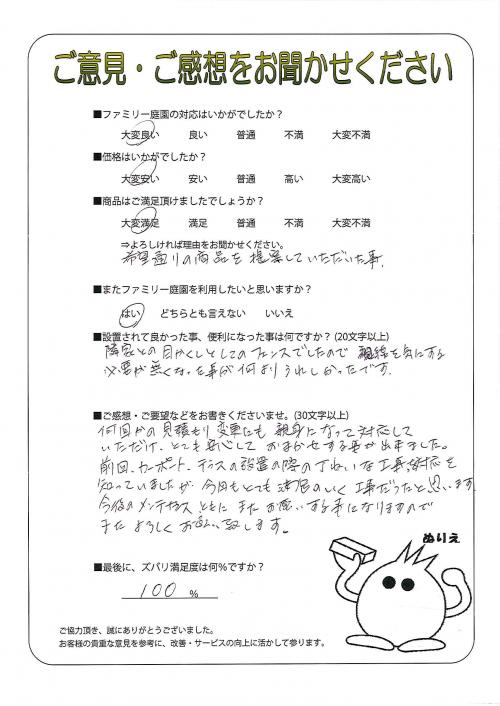 ご意見・ご感想をお聞かせください
■ファミリー庭園の対応はいかがでしたか？
大変良い 良い 普通 不満 大変不満
■価格はいかがでしたか？
大変安い 安い 普通 高い 大変高い
■商品はご満足頂けましたでしょうか？
大変満足 満足 普通 不満 大変不満
⇒よろしければ理由をお聞かせください。
希望通りの商品を提案していただいた事。
■またファミリー庭園を利用したいと思いますか？
はい どちらとも言えない いいえ
■設置されて良かった事、便利になった事は何ですか？（20文字以上）
隣家との目かくしとしてのフェンスでしたので視線を気にする
必要が無くなった事が何よりうれしかったです。
■ご感想・ご要望などをお書きくださいませ。（30文字以上）
何回かの見積もり変更にも親身になって対応して
いただけ、とても安心しておまかせする事が出来ました。
前回、カーポート、テラスの設置の際のていねいな工事、対応を
知っていましたが、今回もとても満足のいく工事だったと思います。
今後のメンテナンスともにまたお願いする事になりますので
またよろしくお願い致します。
ぬりえ
■最後に、ズバリ満足度は何％ですか？
100 ％
ご協力頂き、誠にありがとうございました。
お客様の貴重な意見を参考に、改善・サービスの向上に活かして参ります。